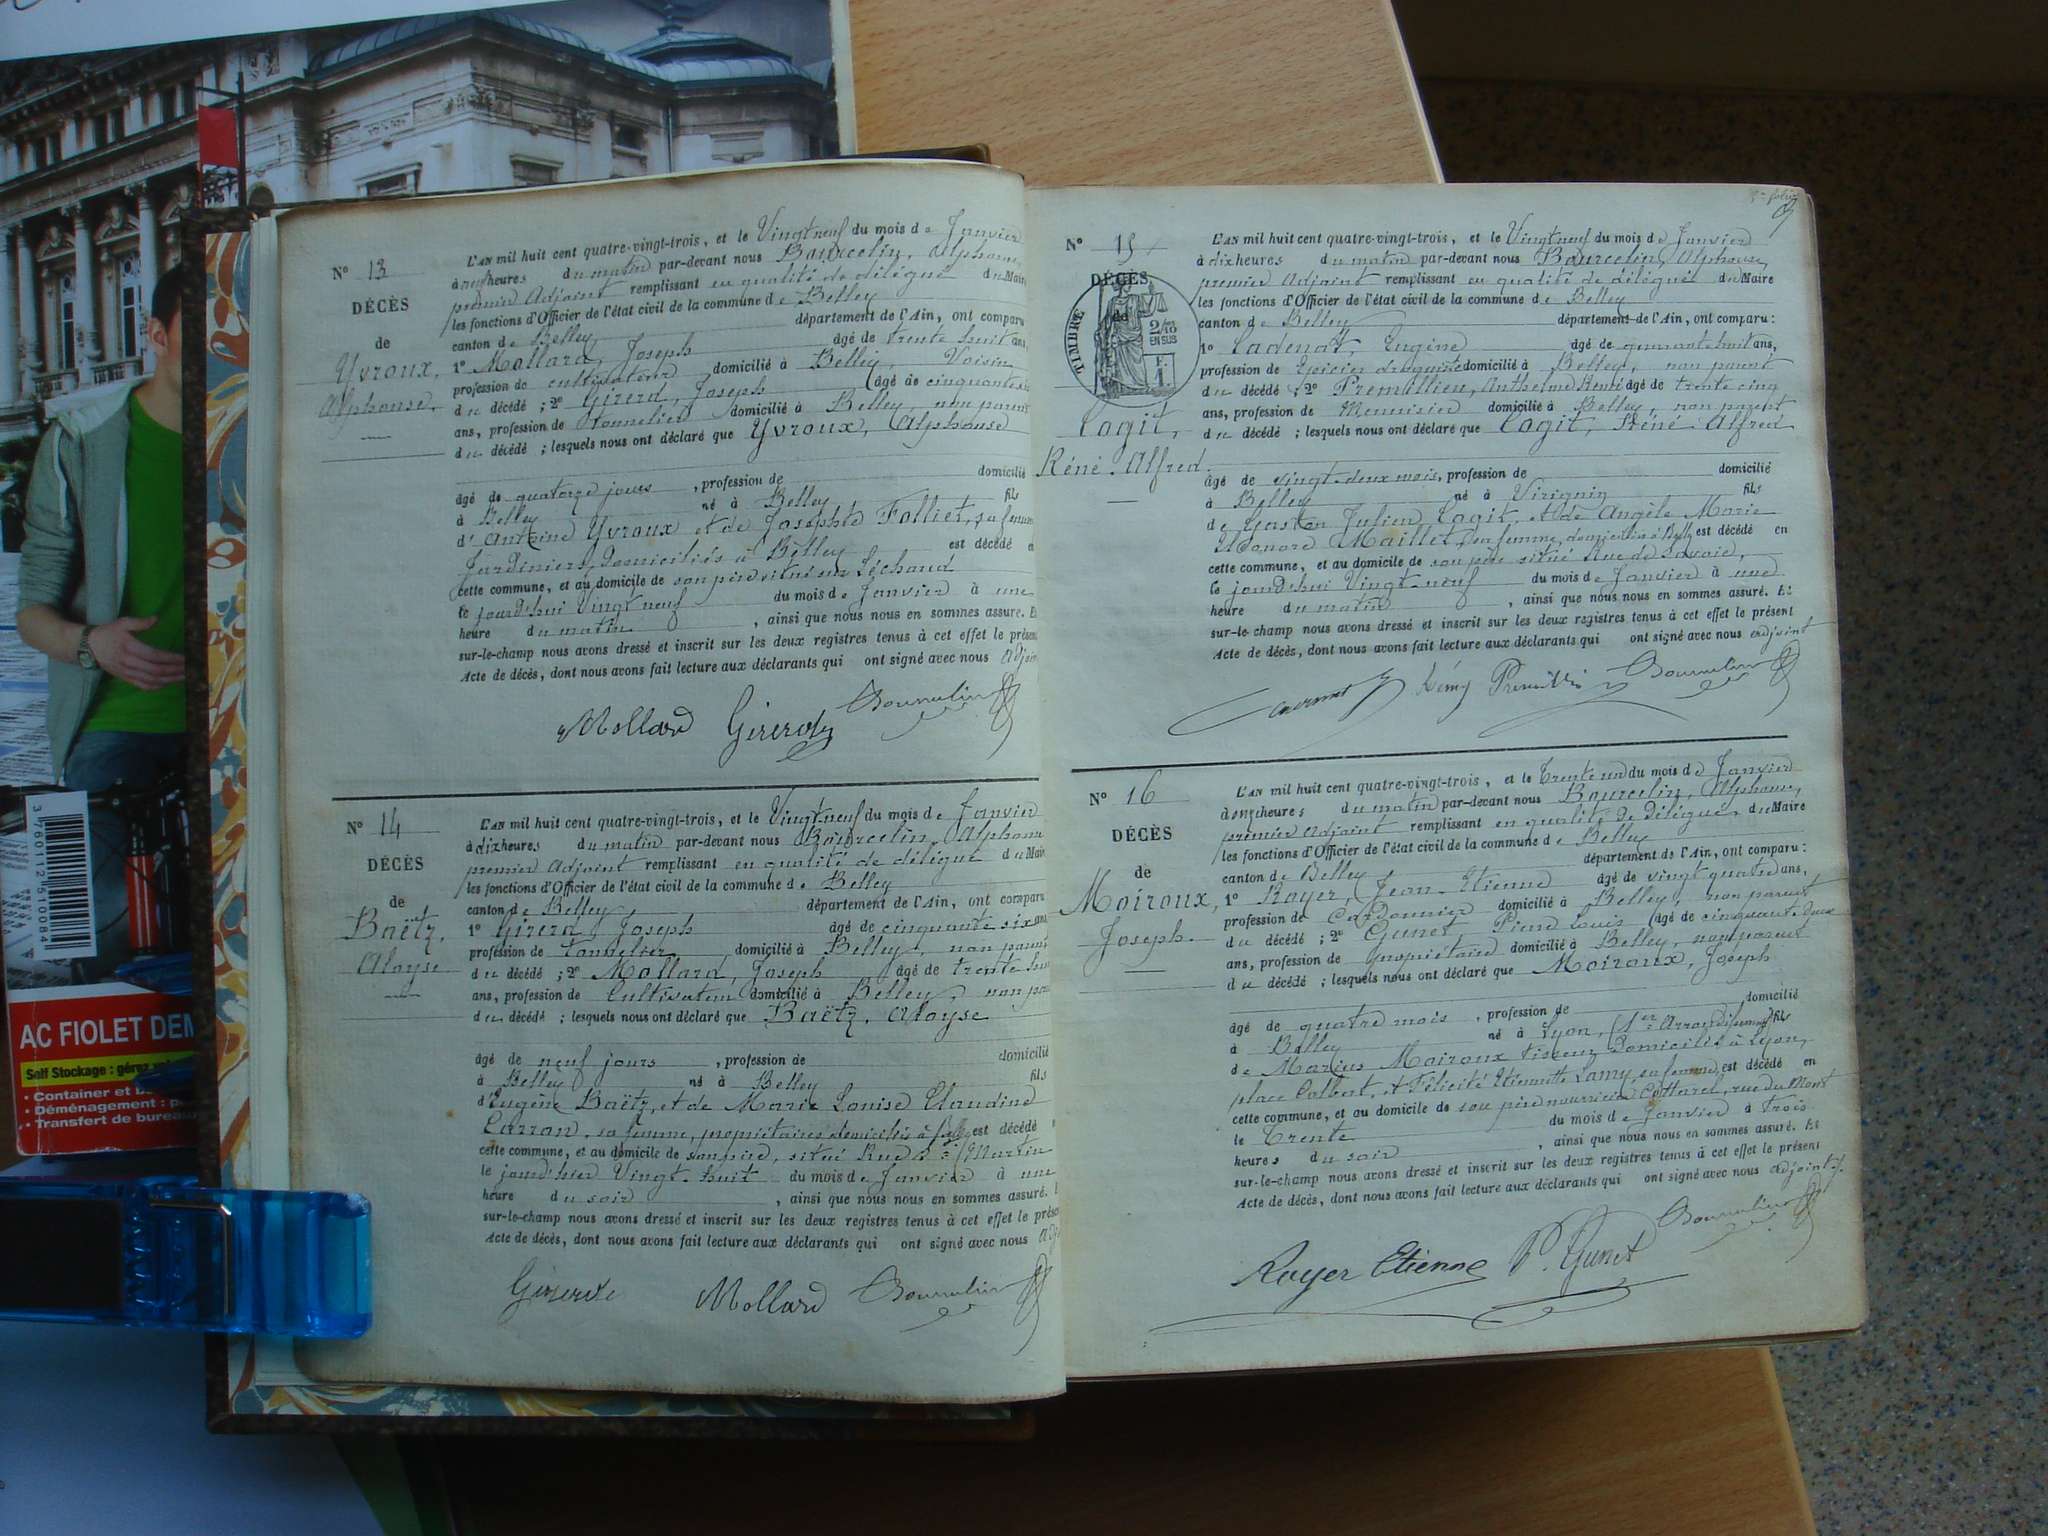 Nº 13
DÉCÈS
de
Yvroux,
Alphonse.
L'AN mil huit cent quatre-vingt-trois, et le Vingt neuf du mois de Janvier
à heures du matin par-devant nous Bourcelin, Alphonse,
premier Adjoint remplissant en qualité de délégué du Maire
les fonctions d'Officier de l'état civil de la commune de Belley
canton de Belley département de l'Ain, ont comparu
1º Mollard, Joseph âgé de trente huit ans,
profession de cultivateur domicilié à Belley, Voisin
du décédé ; 2º Girerd, Joseph âgé de cinquante six
ans, profession de Tonnelier domicilié à Belley, non parent
du décédé ; lesquels nous ont déclaré que Yvroux, Alphonse
âgé de quatorze jours , profession de domicilié
à Belley né à Belley fils
d'Antoine Yvroux et de Josephte Folliet, sa femme
Jardiniers, Domiciliés à Belley est décédé en
cette commune, et au domicile de son père situé en Léchaud
le jourd'hui Vingt neuf du mois de Janvier à une
heure du matin , ainsi que nous nous en sommes assuré. Et
sur-le-champ nous avons dressé et inscrit sur les deux registres tenus à cet effet le présent
Acte de décès, dont nous avons fait lecture aux déclarants qui ont signé avec nous Adjoin
Mollard Girerd Bourcelin
Nº 14
DÉCÈS
de
Baëtz,
Aloyse
L'AN mil huit cent quatre-vingt-trois, et le Vingt neuf du mois de Janvier
à dix heures du matin par-devant nous Bourcelin, Alphonse
premier Adjoint remplissant en qualité de délégué du Maire
les fonctions d'Officier de l'état civil de la commune de Belley
canton de Belley, département de l'Ain, ont comparu
1º Girerd, Joseph âgé de cinquante six ans
profession de tonnelier domicilié à Belley, non parent
du décédé ; 2º Mollard, Joseph âgé de trente huit
ans, profession de Cultivateur domicilié à Belley, non pa
du décédé ; lesquels nous ont déclaré que Baëtz, Aloyse
âgé de neuf jours , profession de domicilié
à Belley né à Belley fils
d'Eugène Baëtz, et de Marie Louise Claudine
Carron, sa femme, propriétaires domiciliés à Belley est décédé
cette commune, et au domicile de son père, situé Rue St Martin
le jour d'hier Vingt-huit du mois de Janvier à une
heure du soir , ainsi que nous nous en sommes assuré.
sur-le-champ nous avons dressé et inscrit sur les deux registres tenus à cet effet le présen
Acte de décès, dont nous avons fait lecture aux déclarants qui ont signé avec nous Adj
Girerd Mollard Bourcelin
Nº 15
DÉCÈS
de
TIMBRE
2/10
EN SUS
Cagit,
Réné-Alfred.
L'AN mil huit cent quatre-vingt-trois, et le Vingt neuf du mois de Janvier
à dix heures du matin par-devant nous Bourcelin, Alphonse,
premier Adjoint remplissant en qualité de délégué du Maire
les fonctions d'Officier de l'état civil de la commune de Belley
canton de Belley département de l'Ain, ont comparu :
1º Cadenat, Eugène âgé de quarante huit ans,
profession de Epicier droguiste domicilié à Belley, non parent
du décédé ; 2º Premillieu, Anthelme Remi âgé de trente cinq
ans, profession de Menuisier domicilié à Belley, non parent
du décédé ; lesquels nous ont déclaré que Cagit, Réné-Alfred
âgé de vingt-deux mois, profession de domicilié
à Belley né à Virignin fils
de Gaston Julien Cagit, et de Angèle Marie
Eléonore Maillet, sa femme, domiciliés à Belley est décédé en
cette commune, et au domicile de son père situé Rue de Savoie,
le jourd'hui Vingt-neuf du mois de Janvier à une
heure du matin , ainsi que nous nous en sommes assuré. Et
sur-le-champ nous avons dressé et inscrit sur les deux registres tenus à cet effet le présent
Acte de décès, dont nous avons fait lecture aux déclarants qui ont signé avec nous adjoint
Rémy Bourcelin
Nº 16
DÉCÈS
de
Moiroux,
Joseph.
L'AN mil huit cent quatre-vingt-trois, et le Trente un du mois de Janvier
à onze heures du matin par-devant nous Bourcelin, Alphonse,
premier Adjoint remplissant en qualité de Délégué du Maire
les fonctions d'Officier de l'état civil de la commune de Belley
canton de Belley département de l'Ain, ont comparu :
1º Royer, Jean-Etienne âgé de vingt quatre ans,
profession de Cordonnier domicilié à Belley, non parent
du décédé ; 2º Gunet, Pierre Louis âgé de cinquante deux
ans, profession de propriétaire domicilié à Belley, non parent
du décédé ; lesquels nous ont déclaré que Moiroux, Joseph
âgé de quatre mois , profession de domicilié
à Belley né à Lyon, (1er Arrondissement) fils
de Marius Moiroux tisseur Domicilié à Lyon,
place Colbert, et Félicité Etiennette Lamy, sa femme, est décédé en
cette commune, et au domicile de son père nourricier Cottarel, rue du Mont
le Trente du mois de Janvier à trois
heures du soir , ainsi que nous nous en sommes assuré. Et
sur-le-champ nous avons dressé et inscrit sur les deux registres tenus à cet effet le présent
Acte de décès, dont nous avons fait lecture aux déclarants qui ont signé avec nous adjoint.
Royer Etienne P. Gunet Bourcelin
3 760112 510084
AC FIOLET DEM
Self Stockage : gérez
• Container et
• Déménagement :
• Transfert de bureau